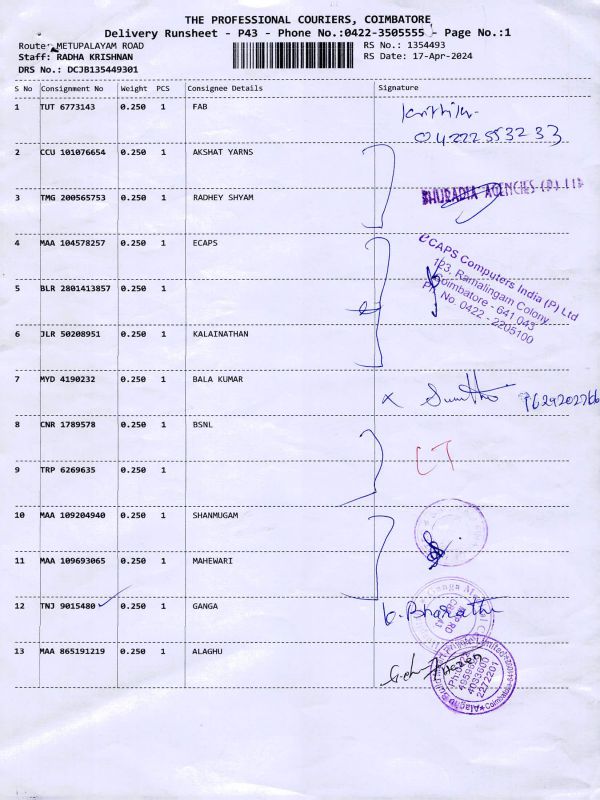 THE PROFESSIONAL COURIERS, COIMBATORE
Delivery Runsheet - P43 - Phone No.:0422-3505555 - Page No.:1
Route: METUPALAYAM ROAD
RS No.: 1354493
Staff: RADHA KRISHNAN
RS Date: 17-Apr-2024
DRS No.: DCJB135449301
S No Consignment No Weight PCS Consignee Details Signature
1 TUT 6773143 0.250 1 FAB
2 CCU 101076654 0.250 1 AKSHAT YARNS
3 TMG 200565753 0.250 1 RADHEY SHYAM
BHURADIA AGENCIES (P) LTD
4 MAA 104578257 0.250 1 ECAPS
eCAPS Computers India (P) Ltd
123, Ramalingam Colony
Coimbatore - 641 043
Ph No. 0422 - 2205100
5 BLR 2801413857 0.250 1
6 JLR 50208951 0.250 1 KALAINATHAN
7 MYD 4190232 0.250 1 BALA KUMAR
8 CNR 1789578 0.250 1 BSNL
9 TRP 6269635 0.250 1
10 MAA 109204940 0.250 1 SHANMUGAM
11 MAA 109693065 0.250 1 MAHEWARI
12 TNJ 9015480 0.250 1 GANGA
b. Bharathi
13 MAA 865191219 0.250 1 ALAGHU
4033600
2272201